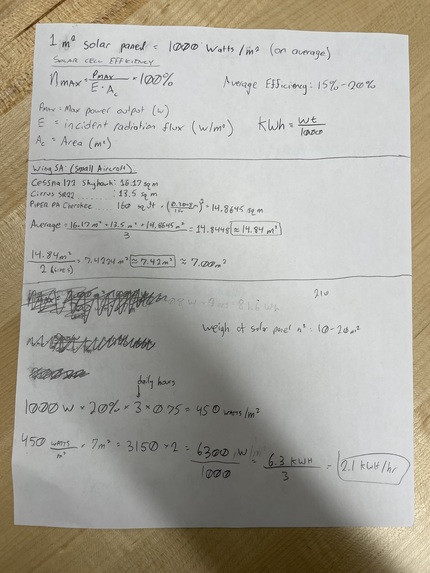 1 m² solar panel = 1000 Watts/m² (on average)
SOLAR CELL EFFICIENCY
ηMAX = PMAX / E · Ac = 100%
Average Efficiency: 15% - 20%
Pmax = Max power output (w)
E = incident radiation flux (w/m²)
Ac = Area (m²)
KWh = wt / 1000
Wing SA: (Small Aircraft)
Cessna 172 Skyhawk: 16.17 sq m
Cirrus SR22 : 13.5 sq m
PIPER PA Cherokee: 160 sq ft = 14.8645 sq m
Average = 16.17 m² + 13.5 m² + 14.8645 m² / 3 = 14.8448 ≈ 14.84 m²
14.84 m² / 2 = 7.4224 m² ≈ 7.42 m² ≈ 7.000 m²
weigh of solar panel
daily hours
1000 W × 20% × 3 × 0.75 = 450 watts/m²
450 watts/m² × 7m² = 3150 × 2 = 6300 / 1000 = 6.3 KWH / 3 = 2.1 KWH/hr